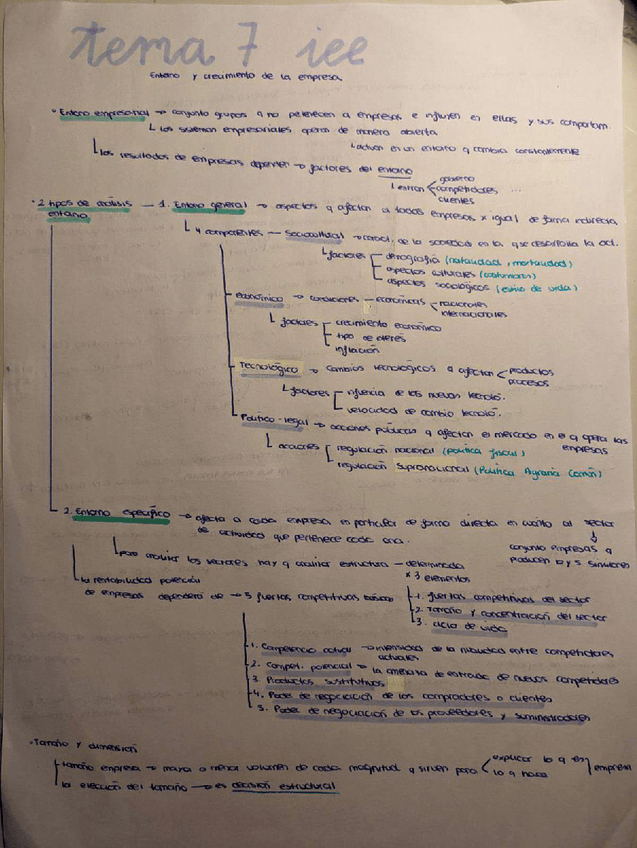 tema 7 iee
Entorno y crecimiento de la empresa
• Entorno empresarial → conjunto grupos q no pertenecen a empresas e influyen en ellas y sus comportam.
los sistemas empresariales operan de manera abierta
actúan en un entorno q cambia constantemente
los resultados de empresas dependen → factores del entorno
entran gobierno
competidores ...
clientes
• 2 tipos de análisis — 1. Entorno general → aspectos q afectan a todas empresas x igual de forma indirecta
entorno
4 componentes — Sociocultural → caract. de la sociedad en la que se desarrolla la act.
factores demografía (natalidad, mortalidad)
aspectos culturales (costumbres)
aspectos sociológicos (estilo de vida)
económico → condiciones — económicas nacionales
internacionales
factores crecimiento económico
tipo de interés
inflación
Tecnológico → cambios tecnológicos q afectan productos
procesos
factores influencia de las nuevas tecnolo.
velocidad de cambio tecnoló.
Político-legal → acciones públicas q afectan el mercado en el q opera las
empresas
acciones regulación nacional (política fiscal)
regulación supranacional (Política Agraria Común)
2. Entorno específico → afecta a cada empresa en particular de forma directa en cuanto al sector
de actividad que pertenece cada una.
conjunto empresas q
producen b y s similares
para analizar los sectores hay q analizar estructura — determinada
x 3 elementos
1. fuerzas competitivas del sector
2. Tamaño y concentración del sector
3. ciclo de vida
la rentabilidad
de empresas dependerá de → 5 fuerzas competitivas básicas
1. Competencia actual → intensidad de la rivalidad entre competidores
actuales
2. Compet. potencial → la amenaza de entrada de nuevos competidores
3. Productos sustitutivos
4. Poder de negociación de los compradores o clientes
5. Poder de negociación de los proveedores y suministradores
• Tamaño y dimensión
tamaño empresa → mayor o menor volumen de cada magnitud q sirven para explicar lo q es
lo q hace
empresa
la elección del tamaño → es decisión estructural